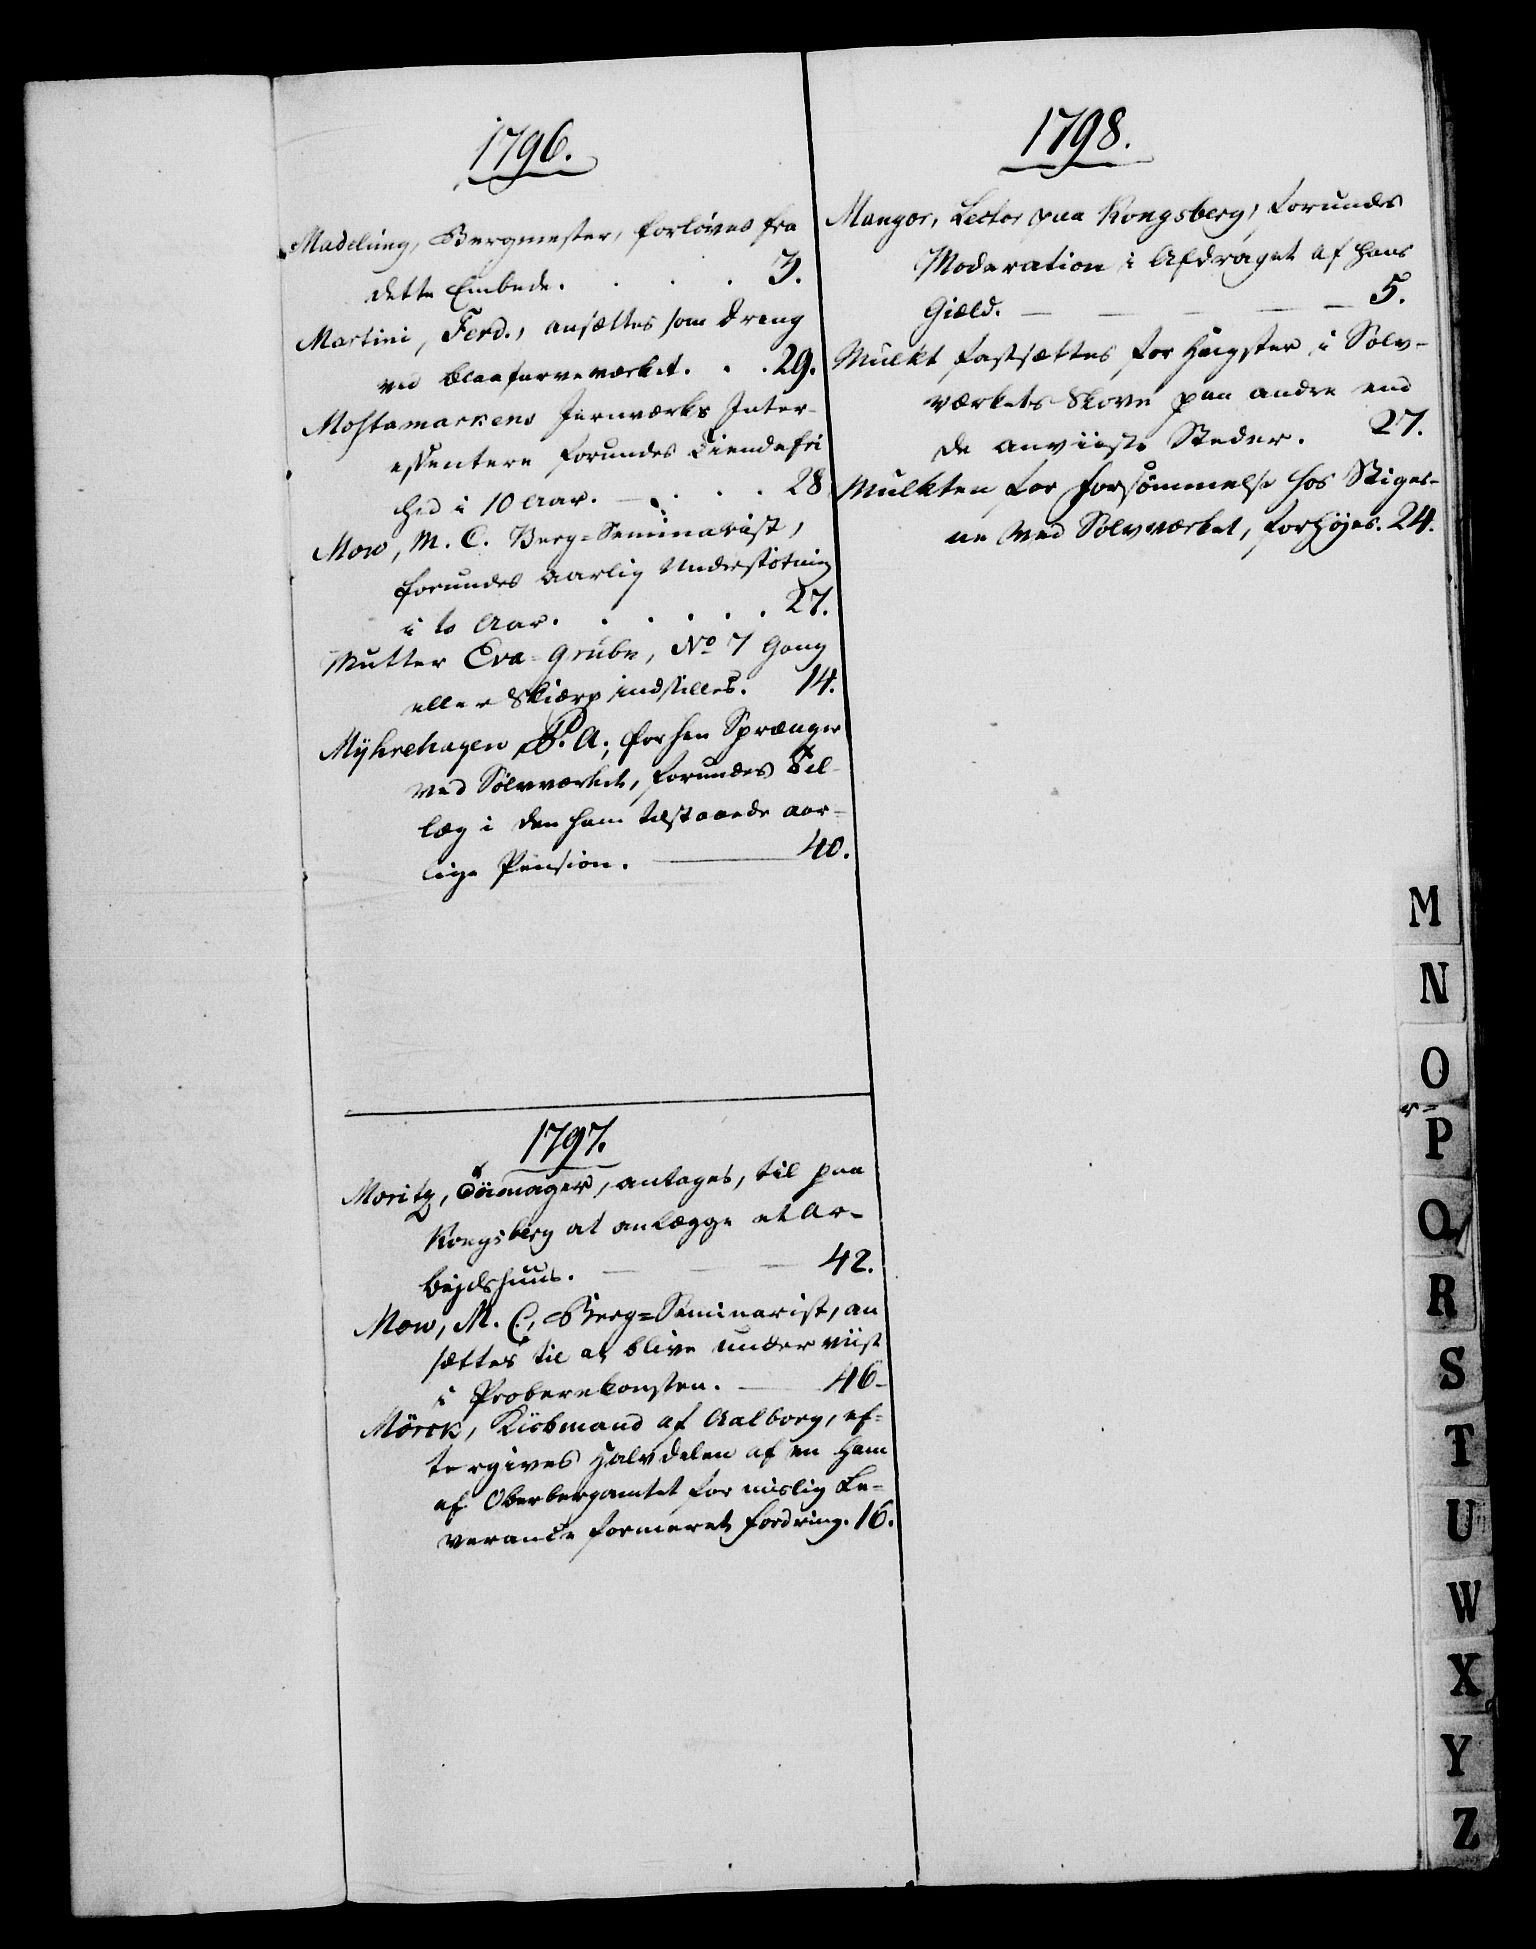 1796.
Madelung, Bergmester, forløves fra
dette Embede. . . . 3.
Martini, Ferd., ansættes som Dreng
ved Blaafarveværket. . . 29.
Mostamarkens Jernværks Inter-
essentere forundes Tiendefri
hed i 10 Aar. — . . . 28
Mow, M. C. Berg-Seminarist,
forundes aarlig Understøtning
i to Aar. . . . . . 27.
Mutter Eva-Grube, No 7 Gang
eller Skiærp indstilles. 14.
Mÿhrehagen P. A., forhen Sprænger
ved Sølvværket, forundes Til-
læg i den ham tilstaaede aar-
lige Pension. — 40.
1797.
Moritz, Tömager, antages, til paa
Kongsberg at anlægge et Ar-
bejdshuus. — — 42.
Mow, M. C., Berg-Seminarist, an
sættes til at blive underviist
i Proberekonsten. — 46-
Mörck, Kiøbmand af Aalborg, ef-
tergives Halvdelen af en ham
af Oberbergamtet for mislig Le-
verance formeret Fordring. 16.
1798.
Mangor, Lector paa Kongsberg, forundes
Moderation i Afdraget af hans
Gield. — — — — 5.
Mulkt fastsættes for Hugster i Sølv-
værkets Skove paa andre end
de anviiste Steder. 27.
Mulkten for Forsømmelse hos Stiger-
ne ved Sølvværket, forhøjes. 24.
M
N
O
P
Q
R
S
T
U
W
X
Y
Z